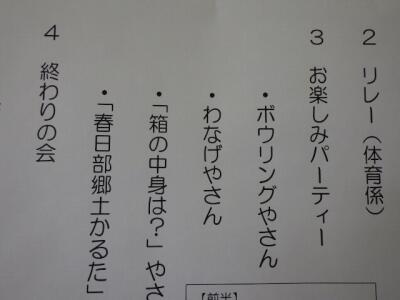 2 リレー(体育係)
3 お楽しみパーティー
・ボウリングやさん
・わなげやさん
・「箱の中身は?」やさ
・「春日部郷土かるた」
4 終わりの会
【前半】